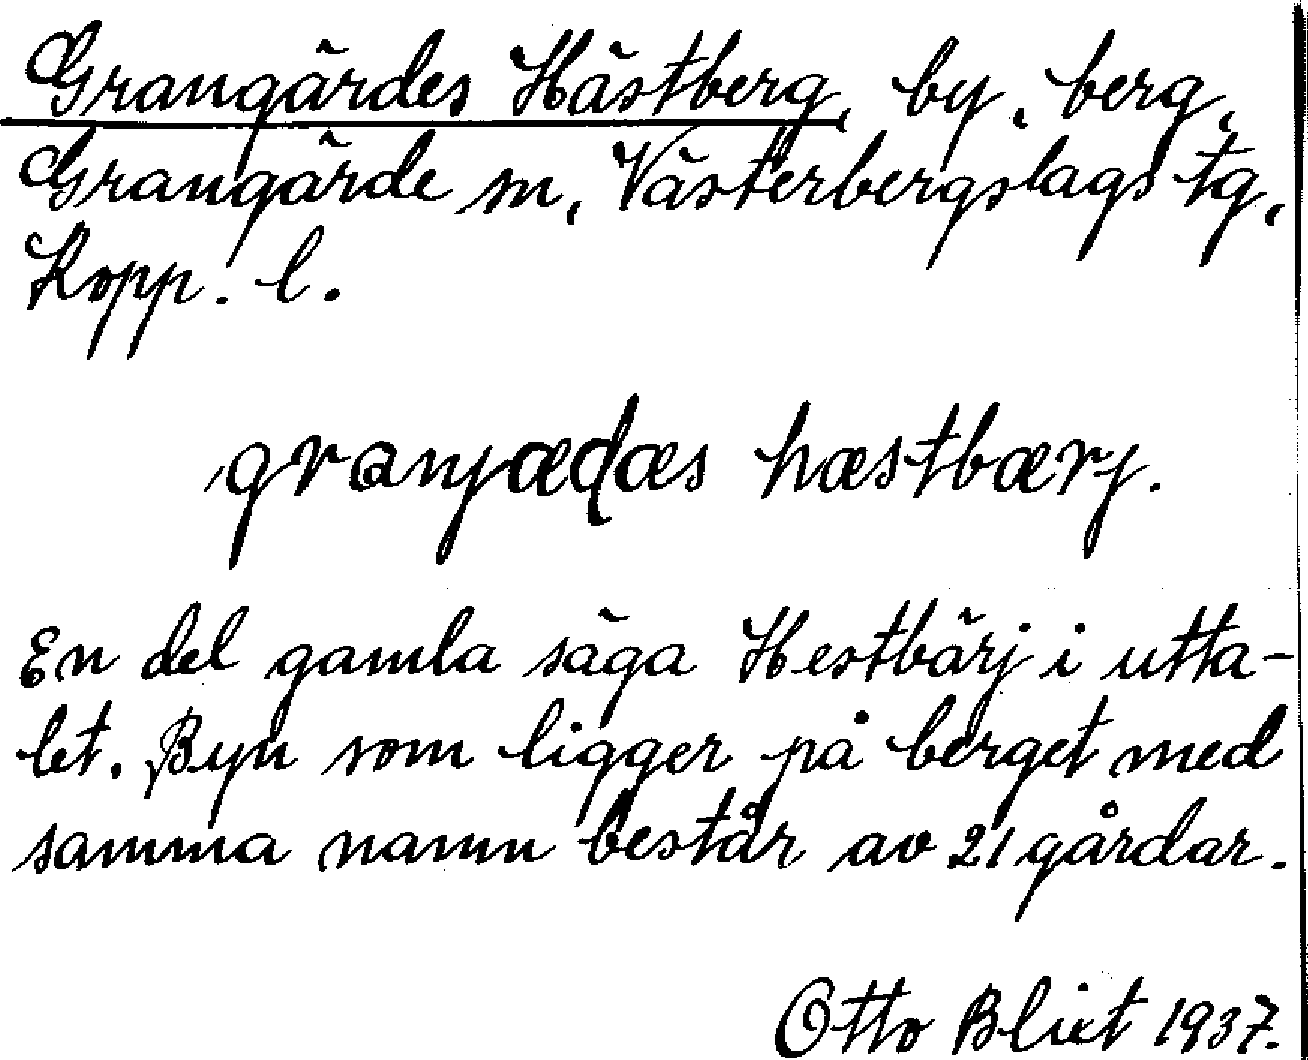 Grangärdes Hästberg, by, berg,
Grangärde sn, Västerbergslags tg,
Kopp. l.
granjædæs hæstbærj.
En del gamla säga Hestbärj i utta-
let. Byn som ligger på berget med
samma namn består av 21 gårdar.
Otto Blixt 1937.